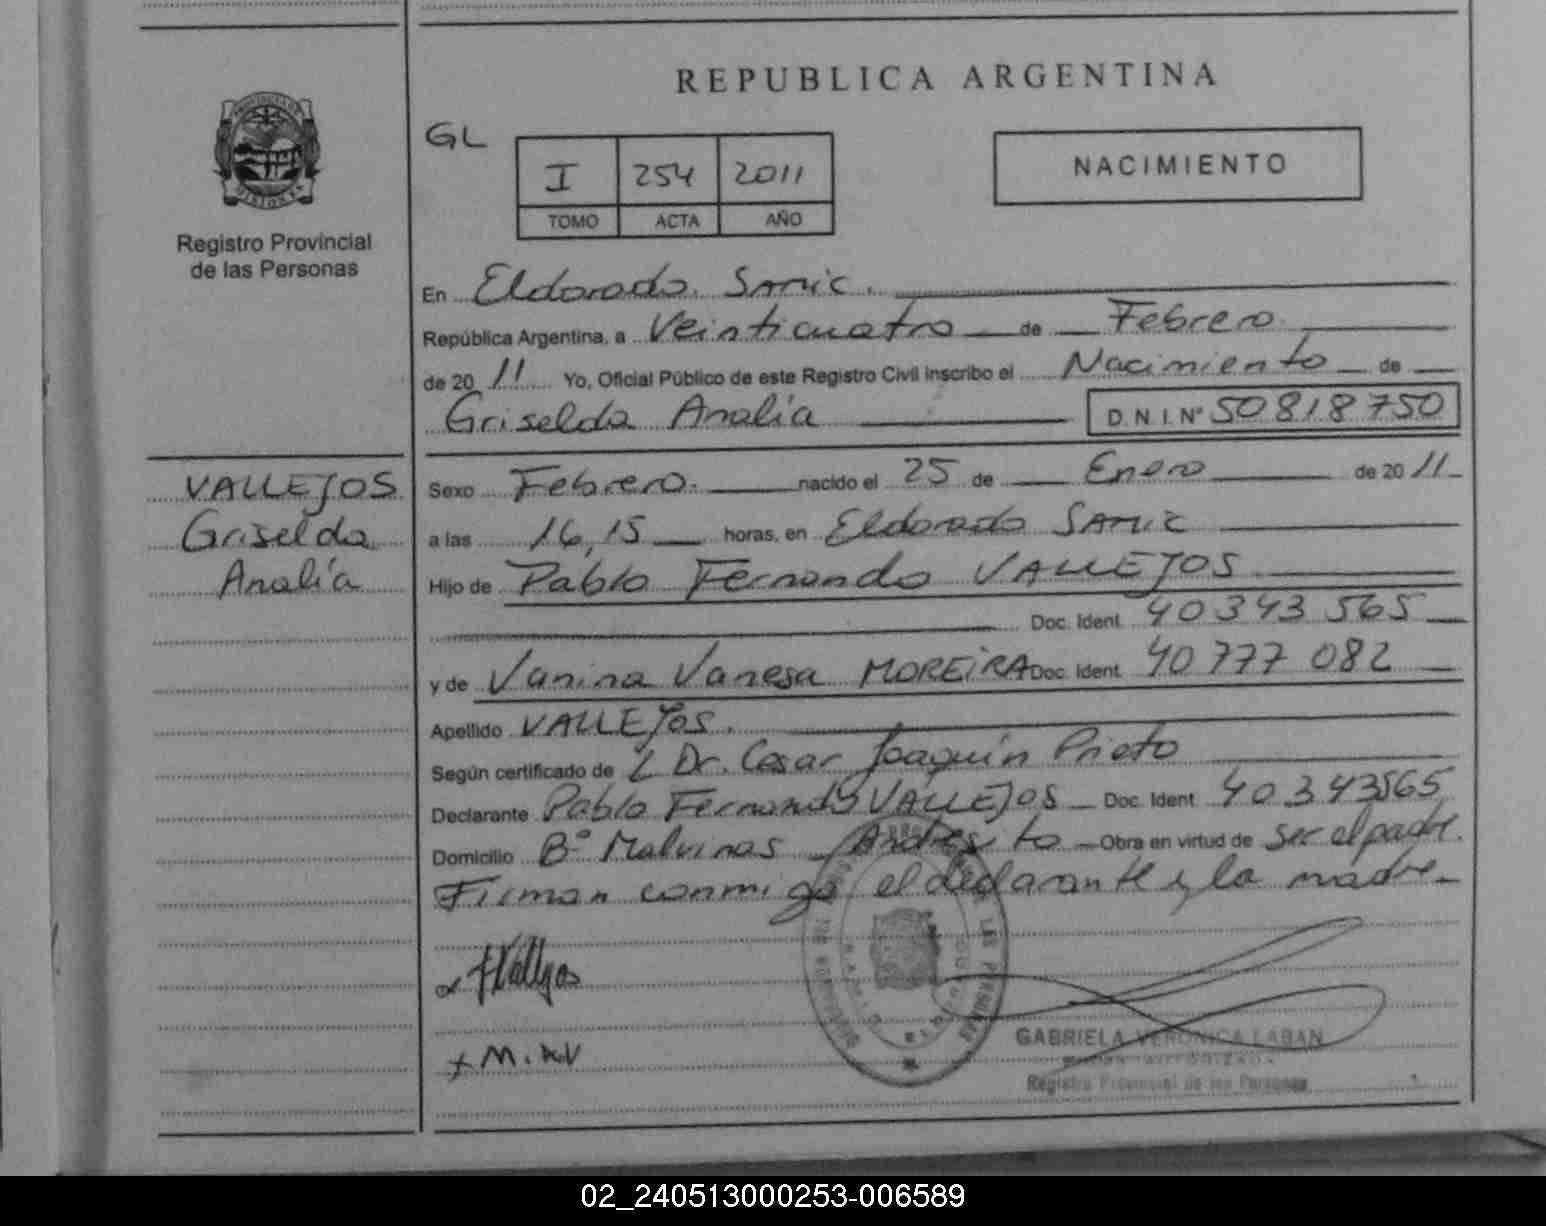 REPUBLICA ARGENTINA
PROVINCIA DE
MISIONES
Registro Provincial
de las Personas
GL
I 254 2011
TOMO ACTA AÑO
NACIMIENTO
En Eldorado. Samic.
República Argentina, a Veinticuatro de Febrero.
de 2011 Yo, Oficial Público de este Registro Civil Inscribo el Nacimiento de
Griselda Analía D.N.I.Nº 50818750
VALLEJOS
Griselda
Analía
Sexo Febrero. nacido el 25 de Enero de 2011
a las 16,15 horas, en Eldorado SAMIC
Hijo de Pablo Fernando VALLEJOS
Doc. Ident. 40343565
y de Vanina Vanesa MOREIRA Doc. Ident. 40777082
Apellido VALLEJOS.
Según certificado de Dr. Cesar Joaquín Prieto
Declarante Pablo Fernando VALLEJOS Doc. Ident 40343565
Domicilio Bº Malvinas Andresito Obra en virtud de ser el padre.
Firman conmigo el declarante y la madre
GABRIELA VERONICA LABAN
Registro Provincial de las Personas
02_240513000253-006589